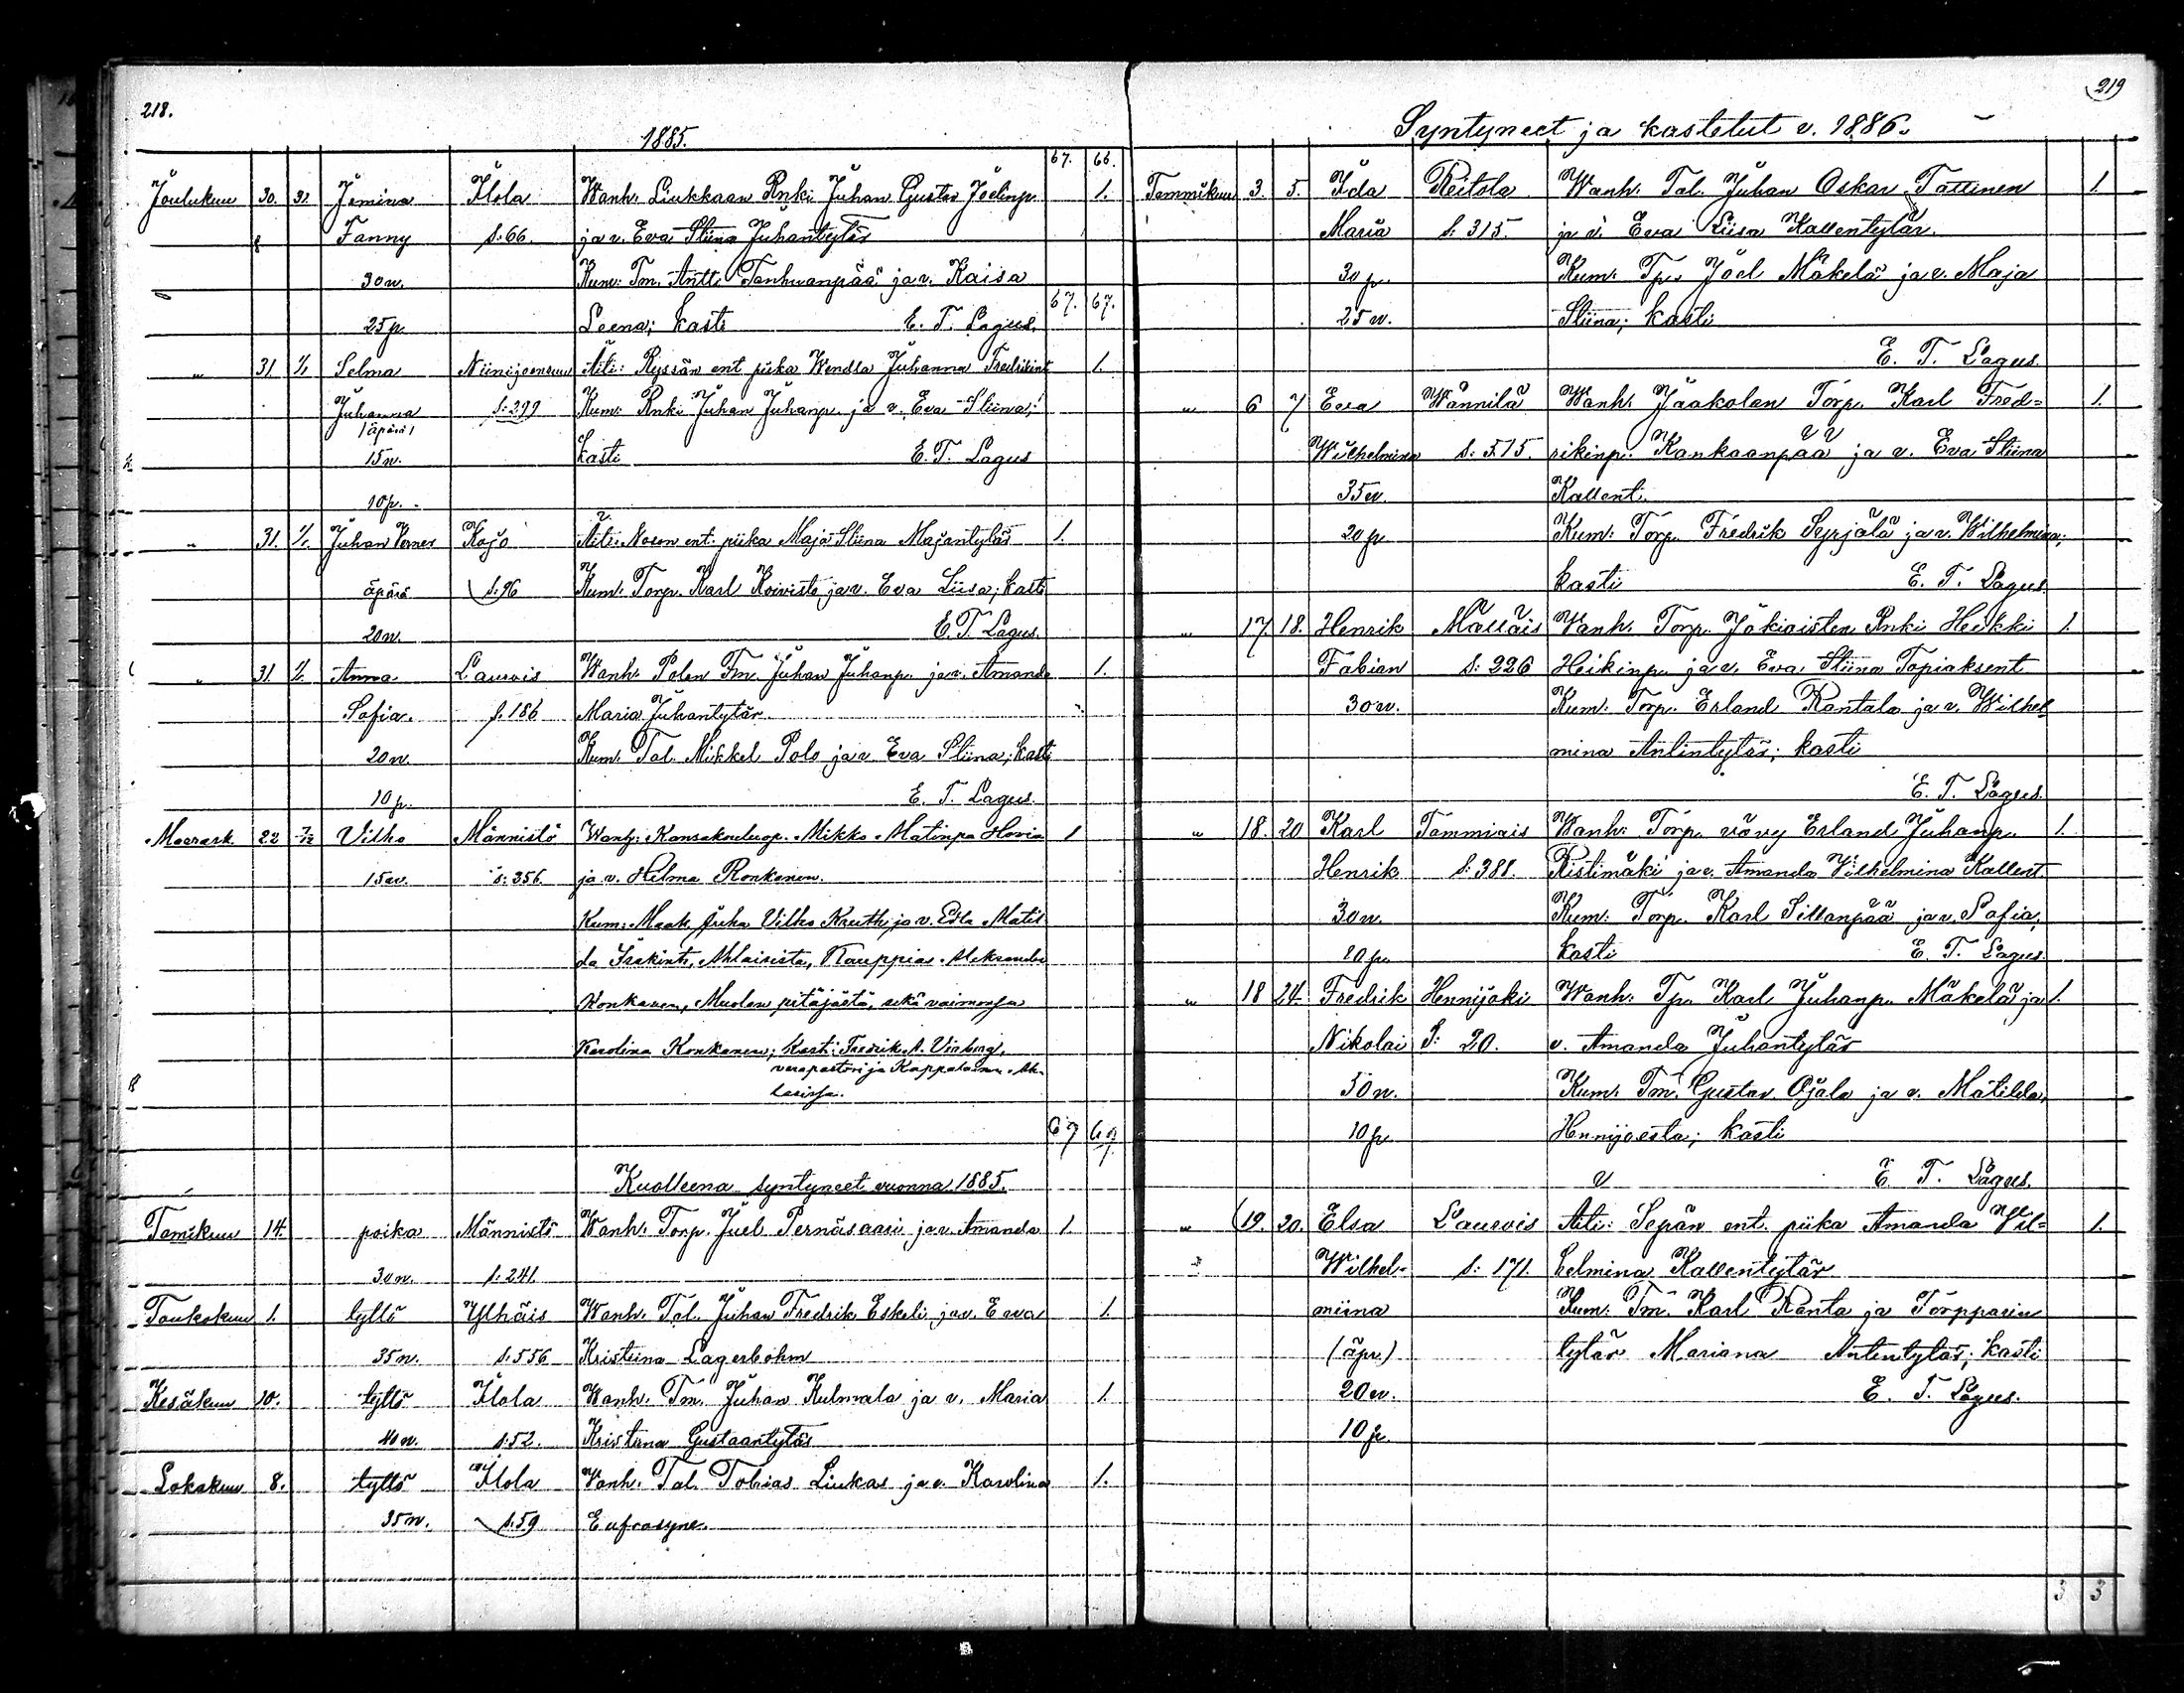 218.
1885.
67. 66.
Joulukuu 30. 31. Jemina Ilola Wanh. Liukkaan Rnki Juhan Gustav Joelinp. 1.
Fanny s. 66. ja v. Eva Stiina Juhantytär
30 v. Kum: Tm. Antti Tanhuanpää ja v. Kaisa
67. 67.
25 p. Leena; kasti E. T. Lagus.
„ 31. 1/1 Selma Niinijoensuu Äiti: Ryssän ent piika Wendla Juhanna Fredrikint 1.
Juhanna s. 299 Kum: Rnki Juhan Juhanp. ja v. Eva Stiina;
/äpärä/
15 v. kasti E. T. Lagus
10 p.
„ 31. 1/1. Juhan Verner Kojo Äiti: Nosen ent. piika Maja Stiina Majantytär 1.
äpärä s. 96 Kum: Torp. Karl Koivisto ja v. Eva Liisa; kasti
20 v. E. T. Lagus.
„ 31. 1/1. Anna Lauvois Wanh. Polon Tm. Juhan Juhanp. ja v. Amanda 1.
Sofia. s. 186 Maria Juhantytär
20 v. Kum: Tal. Mikkel Polo ja v Eva Stiina; kasti
10 p. E. T. Lagus.
Marrask. 22 7/12 Vilho Männistö Wanh: Kansakouluop. Mikko Matinpa Hovia 1
15 v. s. 356. ja v. Helma Ronkanen.
Kum: Maat. Juha Vilho Knuth ja v. Edla Matil
da Isakint, Ahlaisista, Kauppias Aleksander
Konkanen, Muolan pitäjästä, sekä vaimonsa
Karolina Konkanen; kasti: Fredrik A. Virberg,
varapastori ja Kappalainen Ah-
laisissa.
67 67
Kuolleena syntyneet vuonna 1885.
Tamikuu 14. poika Männistö Wanh. Torp. Juel Pernäsaari ja v. Amanda 1.
30 v. s. 241.
Toukokuu 1. tyttö Ylhäis Wanh. Tal. Juhan Fredrik Eskeli ja v. Eva 1.
35 v. s. 556 Kristiina Lagerbohm
Kesäkuu 10. tyttö Ilola Wanh. Tm. Juhan Kulmala ja v. Maria 1.
40 v. s. 52. Kristiina Gustaantytär
Lokakuu 8. tyttö Ilola Wanh. Tal. Tobias Liukas ja v. Karolina 1.
35 v. s. 59 Eufrosyne.
219
Syntyneet ja kastetut v. 1886.
Tammikuu 3. 5. Ida Reitola Wanh. Tal. Juhan Oskar Tattinen 1.
Maria s. 315. ja v. Eva Liisa Kallentytär.
30 p. Kum: Tp. Joel Mäkelä ja v. Maja
25 v. Stiina; kasti
E. T. Lagus.
„ 6 7 Eva Wännilä Wanh. Jaakolan Torp. Karl Fred= 1.
Wilhelmina s. 575. rikinp. Kankaanpää ja v. Eva Stiina
35 v. Kallent.
20 p. Kum: Torp. Fredrik Syrjälä ja v. Wilhelmina;
kasti E. T. Lagus.
„ 17. 18. Henrik Mälläis Wanh. Torp. Jokiaisten Rnki Heikki 1.
Fabian s. 226 Heikinp. ja v. Eva Stiina Topiaksent
30 v. Kum: Torp. Erland Rantala ja v. Wilhel
mina Antintytär; kasti
E. T. Lagus.
„ 18. 20 Karl Tommiais Wanh: Torp. vävy Erland Juhanp. 1.
Henrik s. 388. Ristimäki ja v. Amanda Vilhelmina Kallent
30 v. Kum: Torp. Karl Sillanpää ja v. Sofia;
10 p. kasti E. T. Lagus.
„ 18 24 Fredrik Hennijoki Wanh: Tp. Karl Juhanp. Mäkelä ja 1.
Nikolai S: 20. v. Amanda Juhantytär
50 v. Kum: Tm. Gustav Ojala ja v. Matilda,
10 p. Hennijoesta; kasti
E. T. Lagus.
„ 19. 20. Elsa Lauvois Äiti: Sepän ent. piika Amanda Wil= 1.
Wilhel= s: 171. helmina Kallentytär
miina Kum: Tm. Karl Ranta ja Torpparin
(äpr.) tytär Mariana Antintytär; kasti
20 v. E. T. Lagus.
10 p
3 3